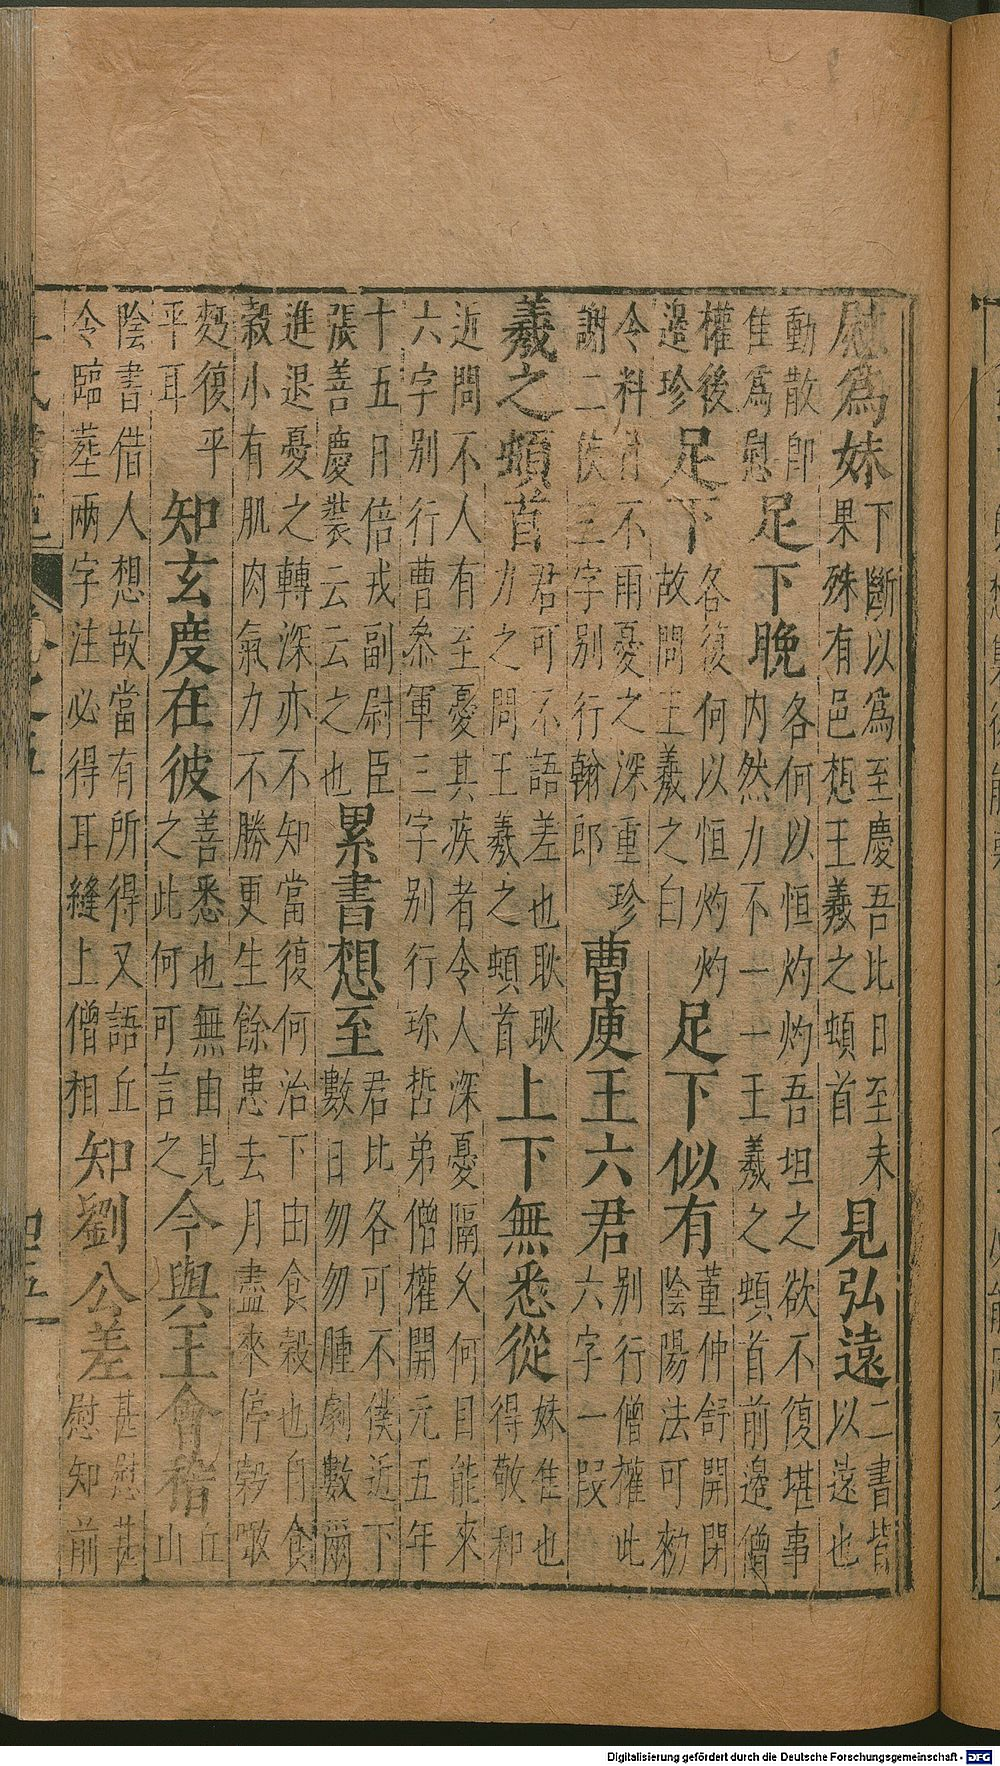 慰爲妹
下斷以爲至慶吾比日至未
果殊有邑想王羲之頓首
見弘遠
二書皆
以遠也
動散卽
隹爲慰
足下晚
各何以恒灼灼吾坦之欲不復堪事
内然力不一一王羲之頓首前邉僧
權後
邉珍
足下
各復何以恒灼灼
故問王羲之白
足下似有
董仲舒開閉
陰陽法可勑
令料不雨憂之深重珍
謝二侯三字别行翰郎
曹庾王六君
别行僧權此
六字一叚
羲之頓首
君可不語差也耿耿
力之問王羲之頓首
上下無悉從
妹隹也
得敬和
近問不人有至憂其疾者令人深憂隔久何目能來
六字别行曹叅軍三字别行珎哲弟僧權開元五年
十五日倍戎副尉臣
張善慶裝云云之也
累書想至
君比各可不僕近下
數日勿勿腫劇數爾
進退憂之轉深亦不知當復何治下由食穀也自食
穀小有肌肉氣力不勝更生餘患去月盡來停穀噉
麪復平
平耳
知玄度在彼
善悉也無由見
之此何可言之
今與王會稽
丘
山
陰書借人想故當有所得又語丘
令臨葬兩字注必得耳縫上僧相
知劉公差
甚慰甚
慰知前
Digitalisierung gefördert durch die Deutsche Forschungsgemeinschaft - DFG